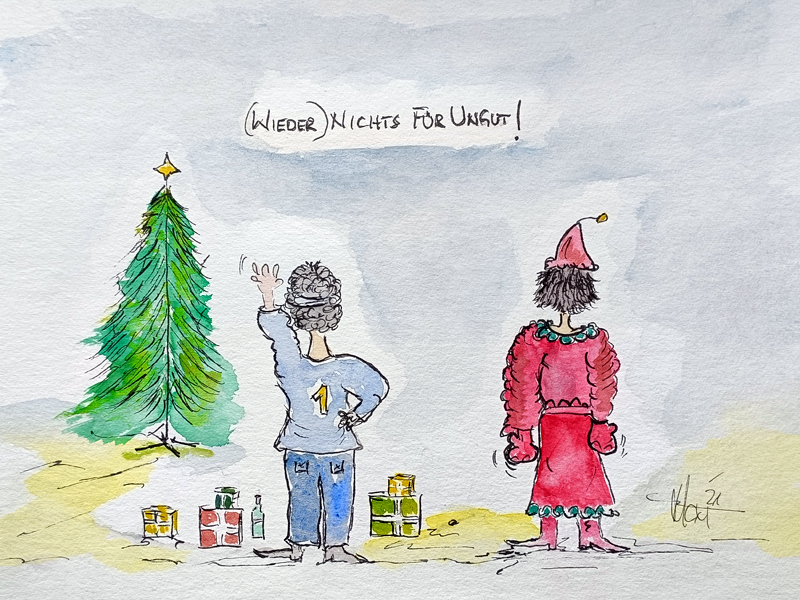 (WIEDER) NICHTS FÜR UNGUT!
1
21